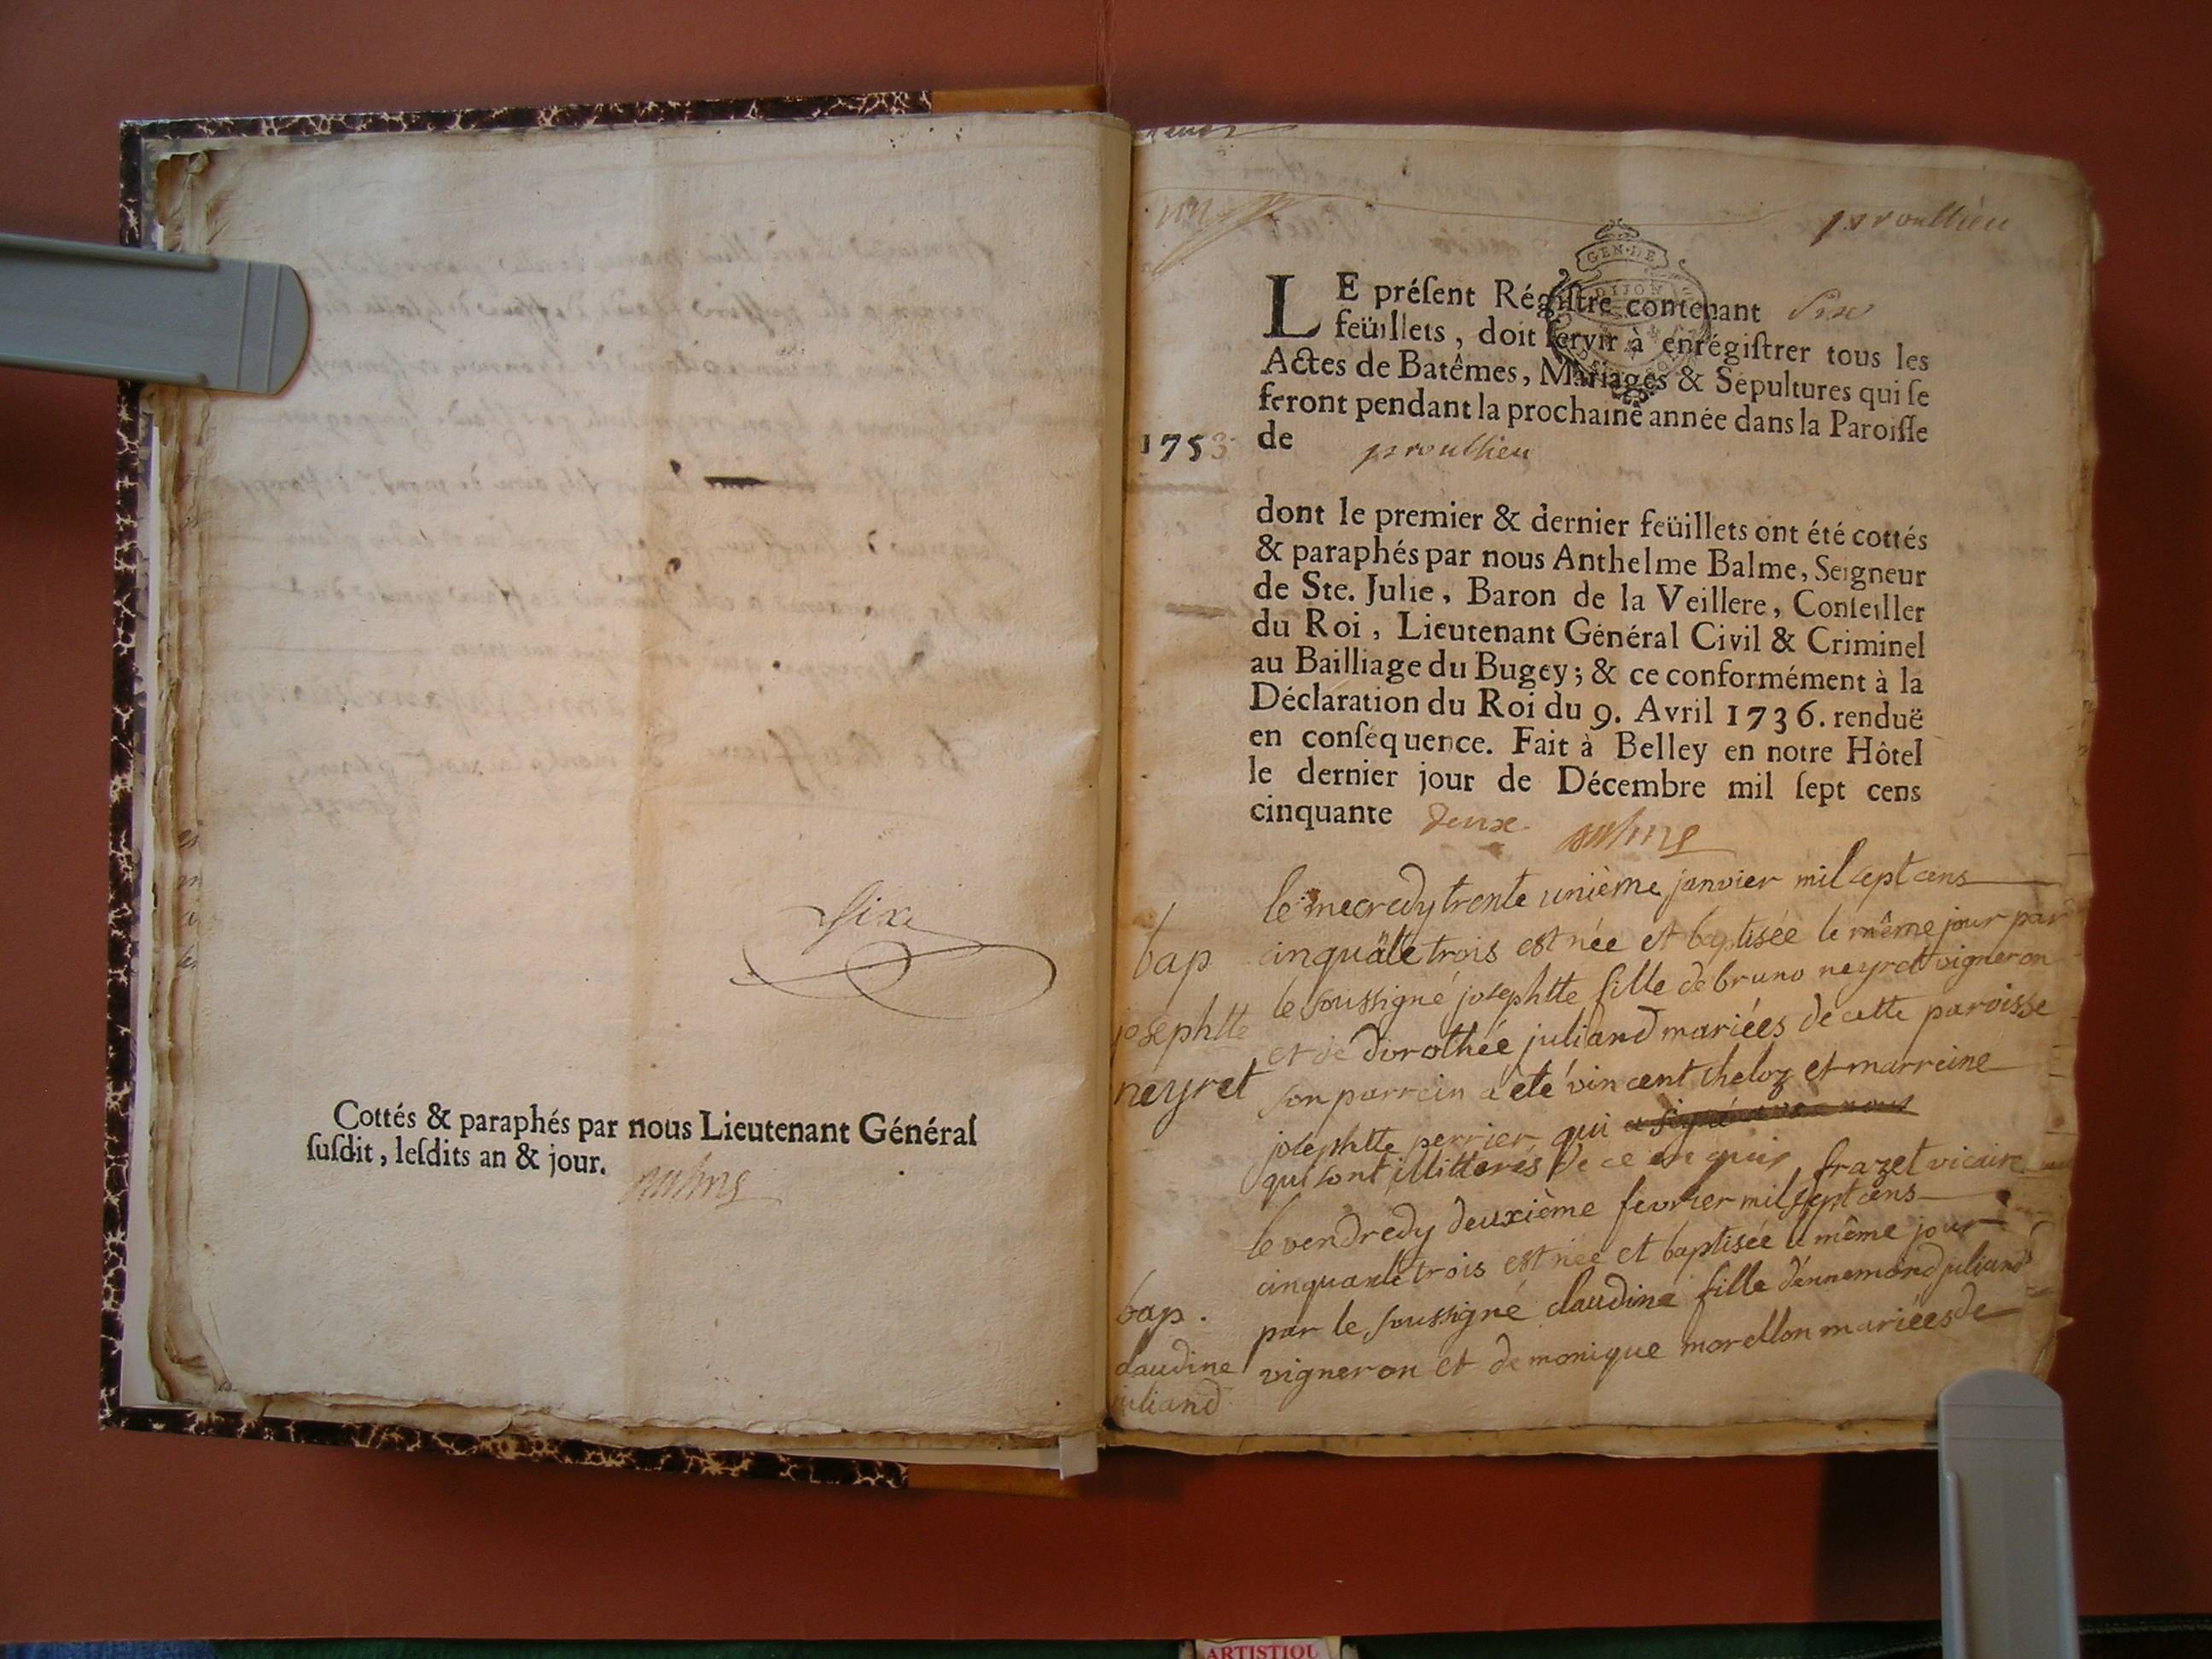 six
Cottés & paraphés par nous Lieutenant Général
ſuſdit, leſdits an & jour.
un
proullieu
GEN·DE
DIJON
LE préſent Régiſtre contenant six
feüillets, doit ſervir à enrégiſtrer tous les
Actes de Batêmes, Mariages & Sépultures qui ſe
feront pendant la prochaine année dans la Paroiſſe
1753 de proullieu
dont le premier & dernier feüillets ont été cottés
& paraphés par nous Anthelme Balme, Seigneur
de Ste. Julie, Baron de la Veillere, Conſeiller
du Roi, Lieutenant Général Civil & Criminel
au Bailliage du Bugey; & ce conformément à la
Déclaration du Roi du 9. Avril 1736. renduë
en conſéquence. Fait à Belley en notre Hôtel
le dernier jour de Décembre mil ſept cens
cinquante deux
bap
josephtte
neyret
le mecredy trente unième janvier mil sept cens
cinquãte trois est née et baptisée le même jour par
le soussigné josephtte fille de bruno neyret vigneron
et de dorothée juliand mariées de cette paroisse
son parrein a èté vincent theloz et marreine
josephtte perrier qui a signé avec nous
qui sont illitterés de ce enquis frazet vicaire
bap.
claudine
juliand
le vendredy deuxième fevrier mil sept cens
cinquante trois est née et baptisée le même jour
par le soussigné claudine fille d'ennemond juliand
vigneron et de monique morellon mariées de
ARTISTIQU